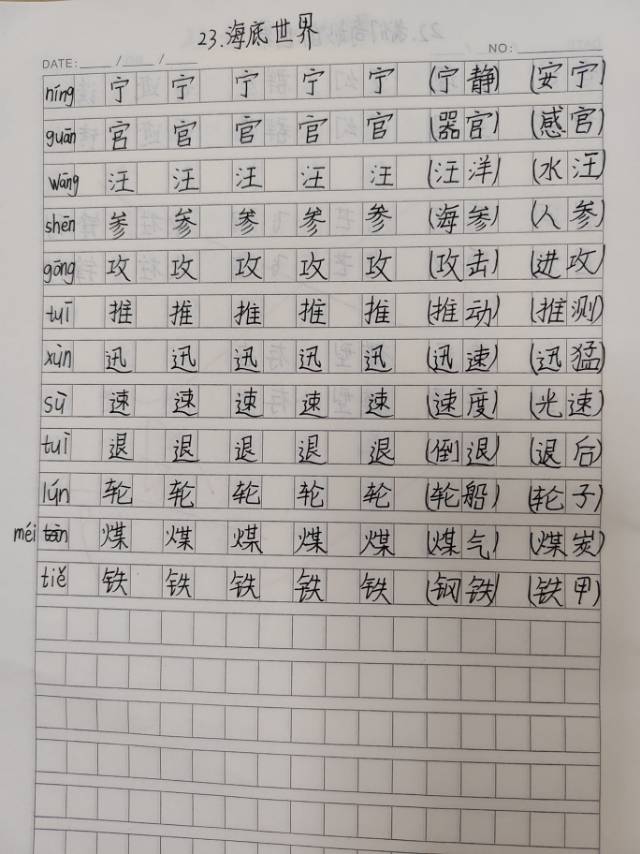 23.海底世界
DATE: / / NO:
níng 宁 宁 宁 宁 宁 (宁静) (安宁)
guān 官 官 官 官 官 (器官) (感官)
wāng 汪 汪 汪 汪 汪 (汪洋) (水汪)
shēn 参 参 参 参 参 (海参) (人参)
gōng 攻 攻 攻 攻 攻 (攻击) (进攻)
tuī 推 推 推 推 推 (推动) (推测)
xùn 迅 迅 迅 迅 迅 (迅速) (迅猛)
sù 速 速 速 速 速 (速度) (光速)
tuì 退 退 退 退 退 (倒退) (退后)
lún 轮 轮 轮 轮 轮 (轮船) (轮子)
méi 煤 煤 煤 煤 煤 (煤气) (煤炭)
tiě 铁 铁 铁 铁 铁 (钢铁) (铁甲)